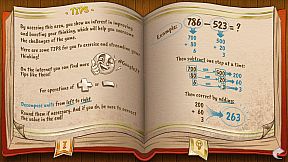 TIPS
By accessing this area, you show an interest in improving
and boosting your thinking, which will help you overcome
the challenges of the game.
Here are some TIPS for you to exercise and streamline your
thinking!
On the internet you can find more
Tips like these!
For operations of + −
Decompose units from left to right.
Round them if necessary. And if you do, be sure to correct
the value in the end!
Example:
786 − 523 = ?
700 500
80 20
6 3
Then subtract one step at a time:
700 − 500 = 200
80 − 20 = 60
6 − 3 = 3
Then correct by adding:
200
+ 60
3
263